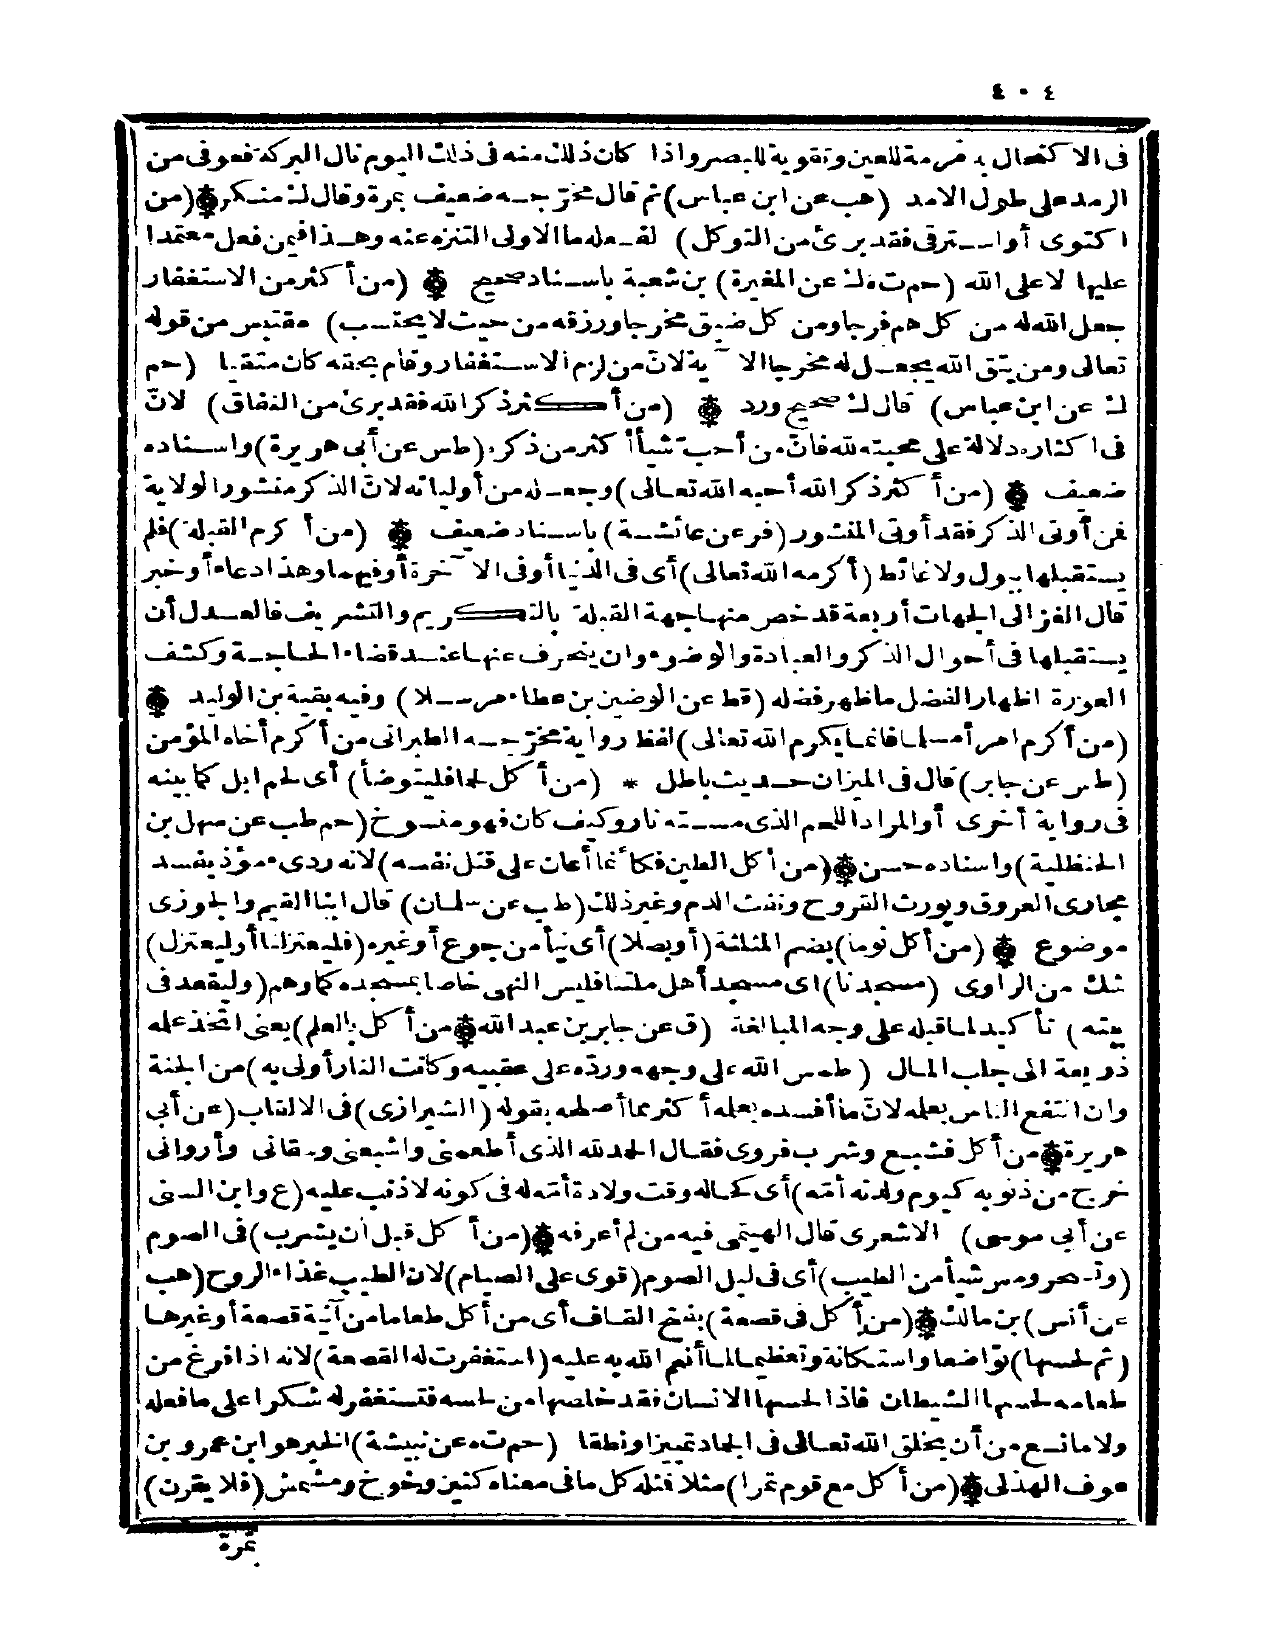 ٤٠٤
فى الاكتحال به مرمة للعين وتقوية للبصر واذا كان ذلك منه فى ذلك اليوم نال البركة فعوفى من
الرمد على طول الامد (هب عن ابن عباس) ثم قال مخرّجه ضعيف بمرة وقال ك منكر (من
اكتوى أو استرقى فقد برئ من التوكل) لفعله ما الاولى التنزه عنه وهذا فيمن فعل معتمدا
عليها لا على الله (حم ت ه ك عن المغيرة) بن شعبة باسناد صحيح (من أكثر من الاستغفار
جعل الله له من كل هم فرجا ومن كل ضيق مخرجا ورزقه من حيث لا يحتسب) مقتبس من قوله
تعالى ومن يتق الله يجعل له مخرجا الآية لانّ من لزم الاستغفار وقام بحقه كان متقيا (حم
ك عن ابن عباس) قال ك صحيح ورد (من أكثر ذكر الله فقد برئ من النفاق) لانّ
فى اكثاره دلالة على محبته لله فانّ من أحب شيأ أكثر من ذكره (طس عن أبى هريرة) واسناده
ضعيف (من أكثر ذكر الله أحبه الله تعالى) وجعله من أوليائه لانّ الذكر منشور الولاية
فمن أوتى الذكر فقد أوتى المنشور (فر عن عائشة) باسناد ضعيف (من أكرم القبلة) فلم
يستقبلها ببول ولا غائط (أكرمه الله تعالى) أى فى الدنيا أو فى الآخرة أو فيهما وهذا دعاء أو خبر
قال الغزالى الجهات أربعة قد خص منها جهة القبلة بالتكريم والتشريف فالعدل أن
يستقبلها فى أحوال الذكر والعبادة والوضوء وان ينحرف عنها عند قضاء الحاجة وكشف
العورة اظهارا لفضل ما ظهر فضله (قط عن الوضين بن عطاء مرسلا) وفيه بقية بن الوليد
(من أكرم امرأ مسلما فانما يكرم الله تعالى) لفظ رواية مخرّجه الطبرانى من أكرم أخاه المؤمن
(طس عن جابر) قال فى الميزان حديث باطل * (من أكل لحما فليتوضأ) أى لحم ابل كما بينه
فى رواية أخرى أو المراد اللحم الذى مسته نار وكيف كان فهو منسوخ (حم طب عن سهل بن
الحنظلية) واسناده حسن (من أكل الطين فكأنما أعان على قتل نفسه) لانه ردىء مؤذ يفسد
مجارى العروق ويورث القروح ونفث الدم وغير ذلك (طب عن سلمان) قال ابنا القيم والجوزى
موضوع (من أكل ثوما) بضم المثلثة (أو بصلا) أى نيأ من جوع أو غيره (فليعتزلنا أو ليعتزل)
شك من الراوى (مسجدنا) اى مسجد أهل ملتنا فليس النهى خاصا بمسجده كما وهم (وليقعد فى
بيته) تأكيد لما قبله على وجه المبالغة (ق عن جابر بن عبد الله من أكل بالعلم) يعنى اتخذ علمه
ذريعة الى جلب المال (طمس الله على وجهه ورده على عقبيه وكانت النار أولى به) من الجنة
وان انتفع الناس بعلمه لانّ ما أفسده بعمله أكثر مما أصلحه بقوله (الشيرازى) فى الالقاب (عن أبى
هريرة من أكل فشبع وشرب فروى فقال الحمد لله الذى أطعمنى وأشبعنى وسقانى وأروانى
خرج من ذنوبه كيوم ولدته أمّه) أى كحاله وقت ولادة أمّه له فى كونه لا ذنب عليه (ع وابن السنى
عن أبى موسى) الاشعرى قال الهيتمى فيه من لم أعرفه (من أكل قبل أن يشرب) فى الصوم
(وتسحر ومس شيأ من الطيب) أى فى ليل الصوم (قوى على الصيام) لان الطيب غذاء الروح (هب
عن أنس) بن مالك (من أكل فى قصعة) بفتح القاف أى من أكل طعاما من آنية قصعة أو غيرها
(ثم لحسها) تواضعا واستكانة وتعظيما لما أنعم الله به عليه (استغفرت له القصعة) لانه اذا فرغ من
طعامه لحسها الشيطان فاذا لحسها الانسان فقد خلصها من لحسه فتستغفر له شكرا على ما فعله
ولا مانع من أن يخلق الله تعالى فى الجماد تمييزا ونطقا (حم ت ه عن نبيشة) الخير هو ابن عمرو بن
عوف الهذلى (من أكل مع قوم تمرا) مثلا فمثله كل ما فى معناه كتين وخوخ ومشمش (فلا يقرن)
تمرة